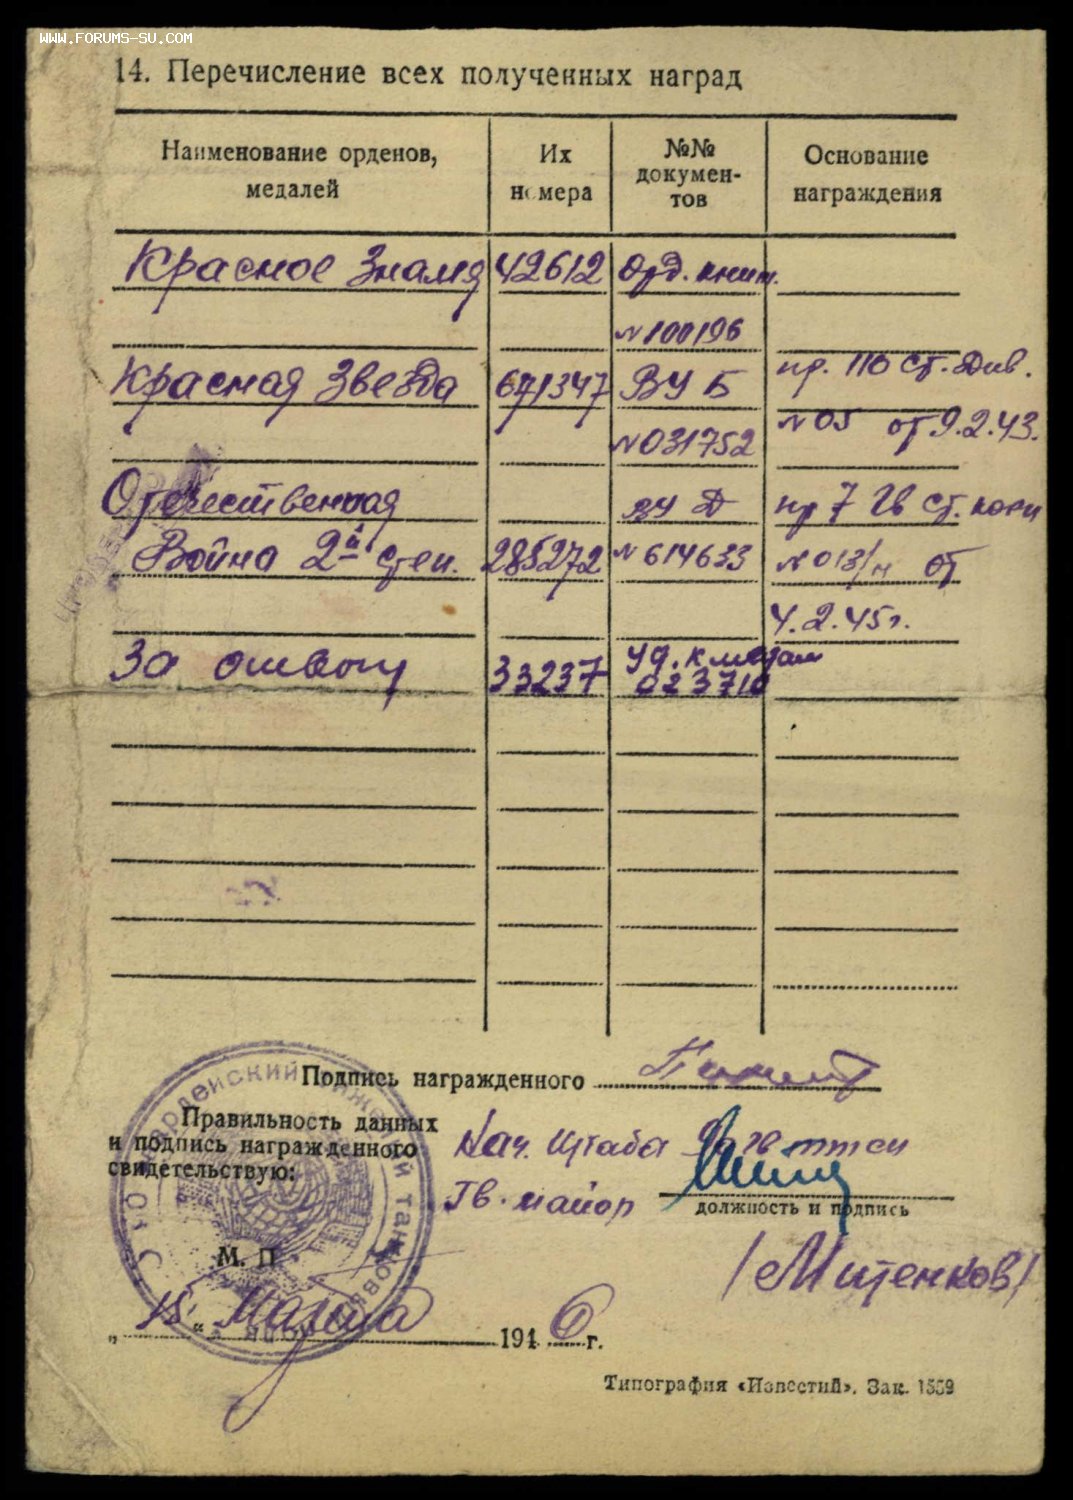 WWW.FORUMS-SU.COM
14. Перечисление всех полученных наград
Наименование орденов, медалей
Их номера
№№ документов
Основание награждения
Красное Знамя 42612 Орд. книж.
№ 100196
Красная Звезда 671347 ВУ Б пр. 110 ст. див.
№ 031752 № 05 от 9.2.43.
Отечественная ВУ Д пр 7 Гв ст. корп
Война 2й степ. 285272 № 614633 № 013/н от
4.2.45г.
За отвагу 33237 Уд. к медали
023710
Подпись награжденного
Правильность данных
и подпись награжденного
свидетельствую:
Нач. штаба гв ттсп
Гв. майор
должность и подпись
М. П.
/Митенков/
„15“ Марта 1946 г.
Типография «Известий». Зак. 1559